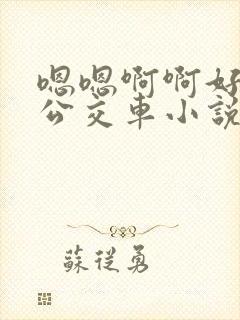 嗯嗯啊啊好
公交车小说
蘇從勇